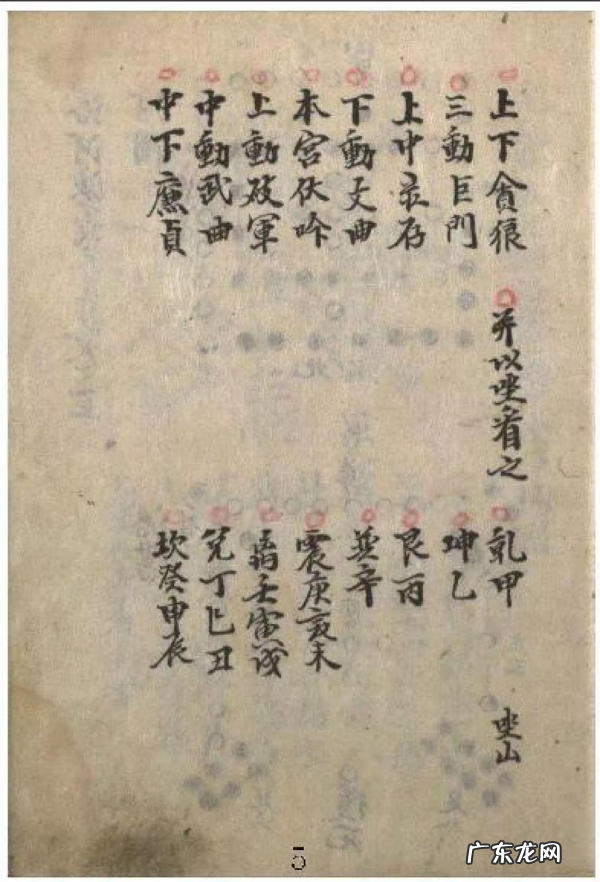 上下貪狼
三動巨門
上中录存
下動文曲
本宮伏吟
上動破軍
中動武曲
中下廉貞
并以坐看之
乾甲
坤乙
艮丙
巽辛
震庚亥未
离壬寅戌
兌丁巳丑
坎癸申辰
坐山
5
广东龙网